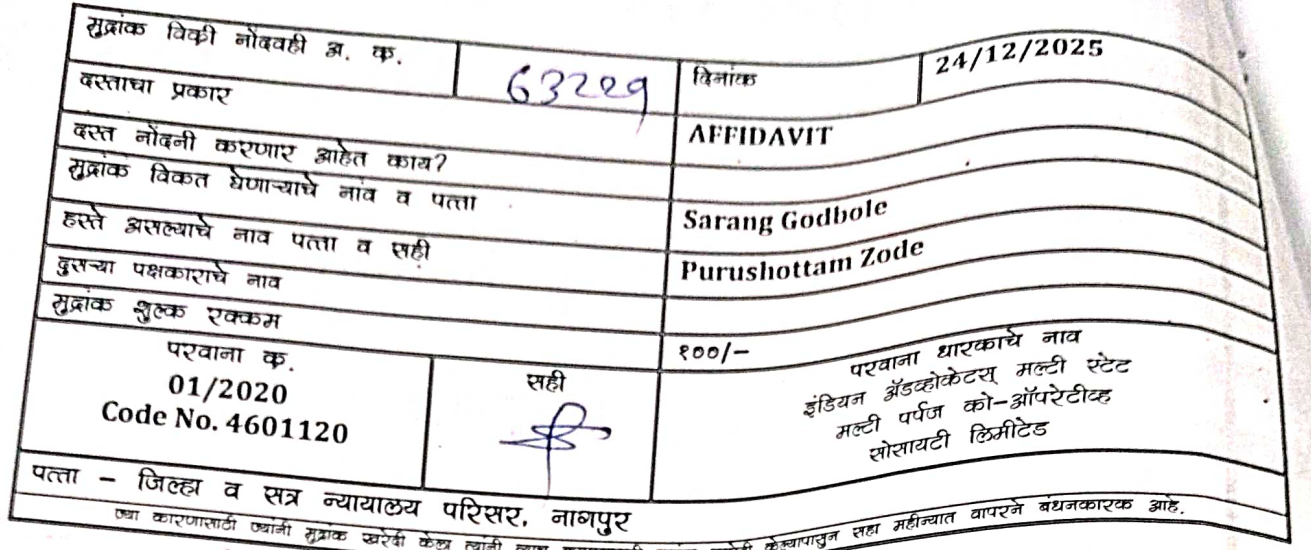 मुद्रांक विक्री नोंदवही अ. क्र. 63229 दिनांक 24/12/2025
दस्ताचा प्रकार AFFIDAVIT
दस्त नोंदनी करणार आहेत काय?
मुद्रांक विकत घेणाऱ्याचे नांव व पत्ता Sarang Godbole
हस्ते असल्याचे नाव पत्ता व सही Purushottam Zode
दुसऱ्या पक्षकाराचे नाव
मुद्रांक शुल्क रक्कम १००/-
परवाना क्र.
01/2020
Code No. 4601120
सही
परवाना धारकाचे नाव
इंडियन ॲडव्होकेटस् मल्टी स्टेट
मल्टी पर्पज को-ऑपरेटीव्ह
सोसायटी लिमीटेड
पत्ता - जिल्हा व सत्र न्यायालय परिसर, नागपुर
ज्या कारणासाठी ज्यांनी मुद्रांक खरेदी केला त्यांनी केल्यापासुन सहा महीन्यात वापरने बंधनकारक आहे.